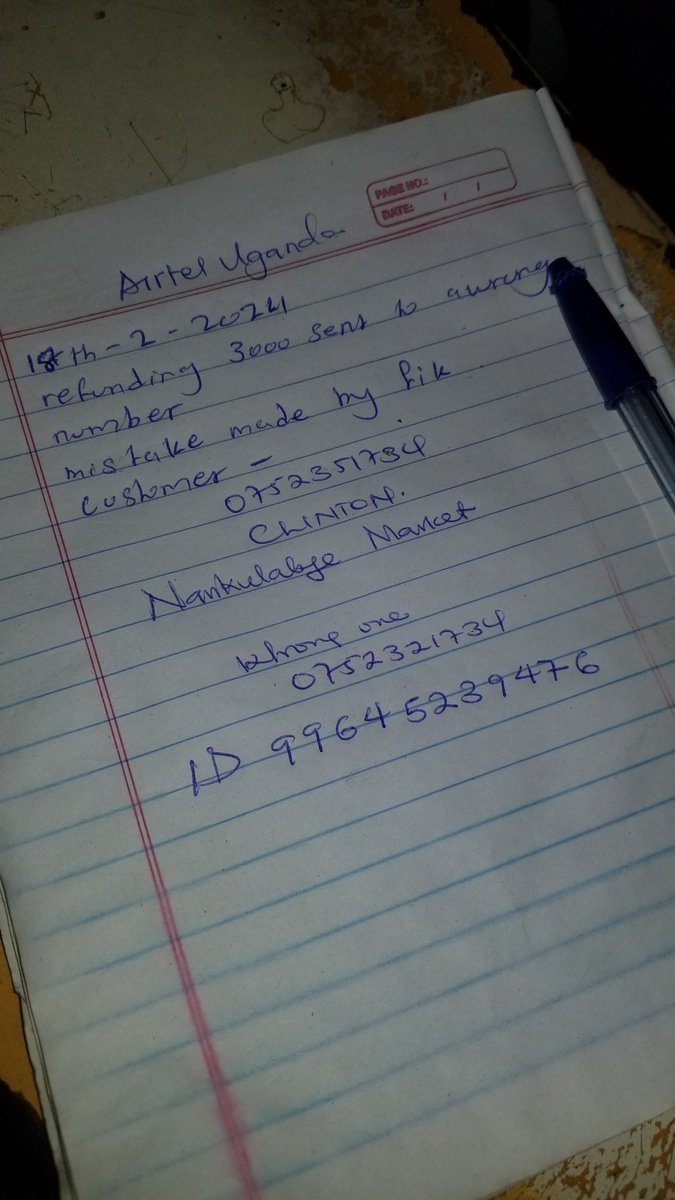 PAGE NO.:
DATE: / /
Airtel Uganda
18th-2-2024
refunding 3000 sent to awrong
number
mistake made by
customer -
0752351734
CLINTON.
Nankulabye Market
one
0752321734
ID 99645239476